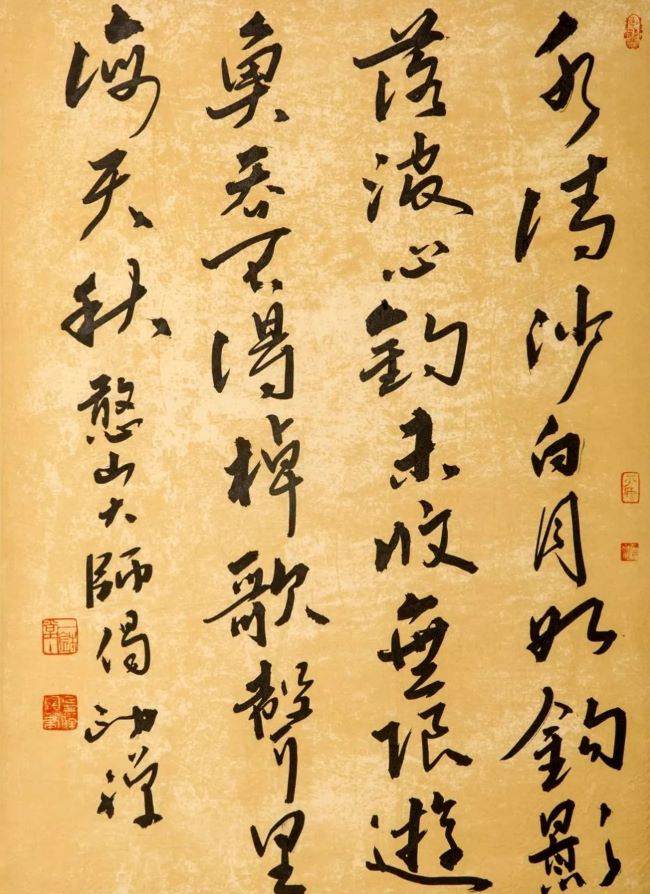 水清沙白月如鈎影
落波心鈎未收無限遊
魚吞不得棹歌聲里
海天秋憨山大師偈禪